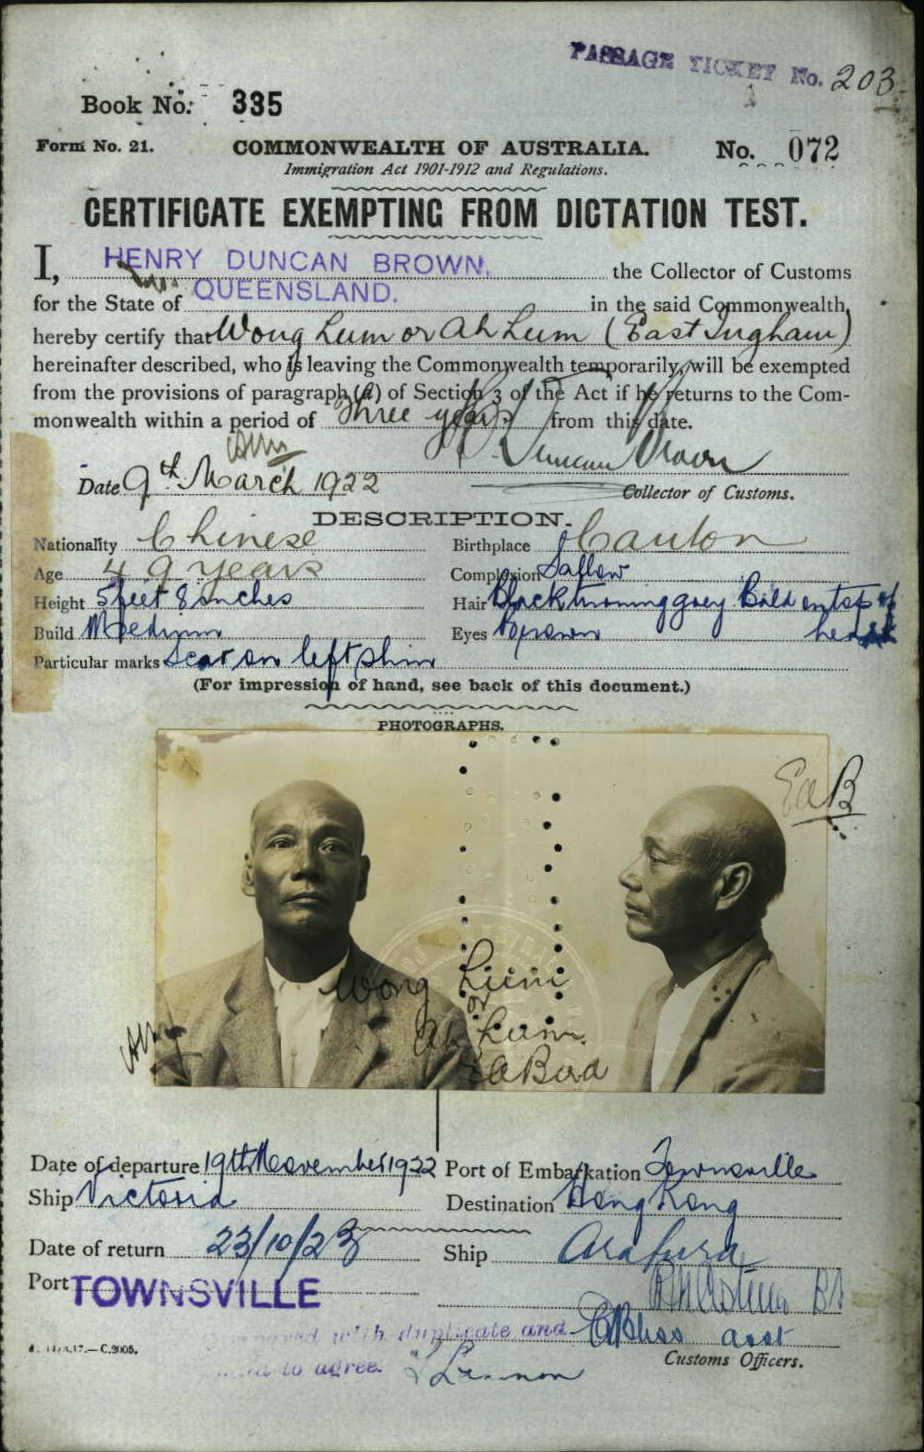 PASSAGE TICKET No. 203
Book No. 335
Form No. 21.
COMMONWEALTH OF AUSTRALIA.
No. 072
Immigration Act 1901-1912 and Regulations.
CERTIFICATE EXEMPTING FROM DICTATION TEST.
I, HENRY DUNCAN BROWN, the Collector of Customs
for the State of QUEENSLAND. in the said Commonwealth,
hereby certify that Wong Lum or Ah Lum (East Ingham)
hereinafter described, who is leaving the Commonwealth temporarily, will be exempted
from the provisions of paragraph (a) of Section 3 of the Act if he returns to the Com-
monwealth within a period of Three years from this date.
H. Duncan Brown
Date 9th March 1922
Collector of Customs.
DESCRIPTION.
Nationality Chinese Birthplace Canton
Age 49 years Complexion Sallow
Height 5 feet 8 inches Hair Black turning grey Bald on top of
Build Medium Eyes Brown head
Particular marks Scar on left shin
(For impression of hand, see back of this document.)
PHOTOGRAPHS.
EaB
Wong Lum
or
Ah Lum
Date of departure 19th November 1922 Port of Embarkation Townsville
Ship Victoria Destination Hong Kong
Date of return 23/10/23 Ship Arafura
Port TOWNSVILLE
with duplicate and
to agree.
asst
Customs Officers.
C.2005.